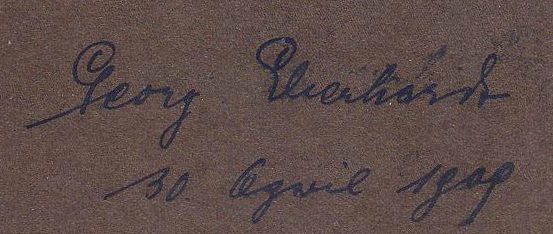 Georg Eberhardt
30. April 1909